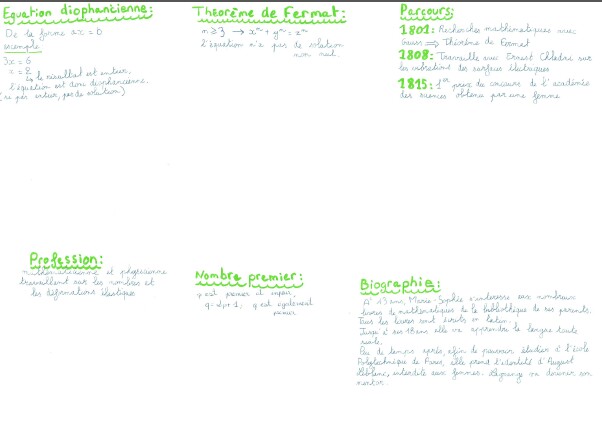 Equation diophantienne:
De la forme ax = 0
exemple
3x = 6
x = 2
↳ le résultat est entier,
l'équation est donc diophantienne.
(si pas entier, pas de solution)
Théorème de Fermat:
n ≥ 3 → xⁿ + yⁿ = zⁿ
l'équation n'a pas de solution
non nul.
Parcours:
1801: Recherches mathématiques avec
Gauss ⟹ Théorème de Fermat
1808: Travaille avec Ernest Chladni sur
les vibrations des surfaces élastiques
1815: 1er prix du concours de l'académie
des sciences obtenu par une femme
Profession:
mathématicienne et physicienne
travaillant sur les nombres et
les déformations élastiques
Nombre premier:
p est premier et impair
q = 2p + 1, q est également
premier
Biographie:
A 13 ans, Marie-Sophie s'intéresse aux nombreux
livres de mathématiques de la bibliothèque de ses parents.
Tous les livres sont écrits en latin,
Jusqu'à ses 18 ans elle va apprendre la langue toute
seule.
Peu de temps après, afin de pouvoir étudier à l'école
Polytechnique de Paris, elle prend l'identité d'August
Leblanc, interdite aux femmes. Lagrange va devenir son
mentor.